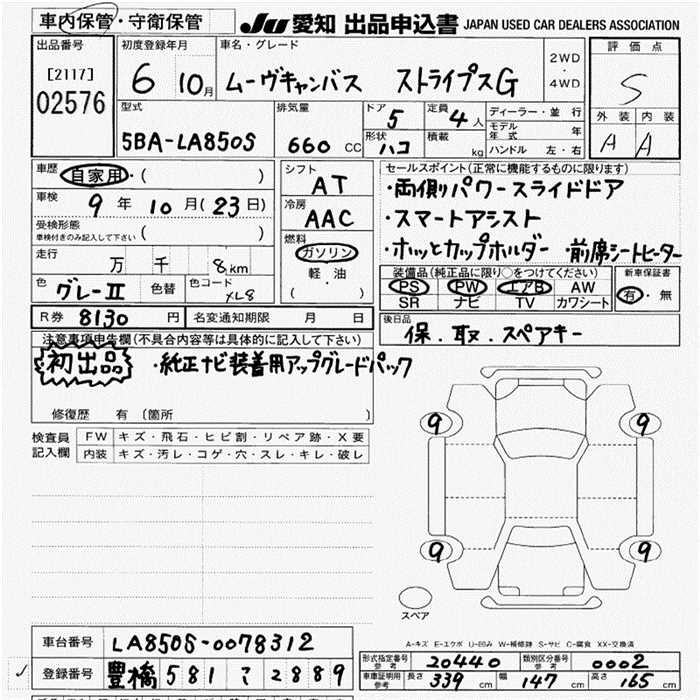 車内保管・守衛保管 JU 愛知 出品申込書 JAPAN USED CAR DEALERS ASSOCIATION
出品番号 初度登録年月 車名・グレード 2WD・4WD 評価点
[2117] 6 10月 ムーヴキャンバス ストライプスG S
02576
型式 排気量 ドア 5 定員 4人 ディーラー・並行 外装 内装
5BA-LA850S 660 CC 形状 ハコ 積載 kg モデル年式 年 A A
ハンドル 左・右
車歴 自家用・( )
シフト AT
セールスポイント(正常に機能するものに限ります)
車検 9年10月(23日)
・両側パワースライドドア
冷房 AAC
・スマートアシスト
受検形態
車検付きのみ記入して下さい ( )
燃料 ガソリン
・ホッとカップホルダー ・前席シートヒーター
走行 万 千 8km
軽・油
装備品(純正品に限り○をつけてください) 新車保証書
PS PW エアB AW 有・無
色 グレーII 色替 色コード XL8 ( )
SR ナビ TV カワシート
R券 8130円 名変通知期限 月 日
後日品
保.取.スペアキー
注意事項申告欄(不具合内容等は具体的に記入して下さい)
初出品 ・純正ナビ装着用アップグレードパック
修復歴 有 (箇所 )
検査員記入欄 FW キズ・飛石・ヒビ割・リペア跡・X要
内装 キズ・汚レ・コゲ・穴・スレ・キレ・破レ
9 9
9 9
スペア
A-キズ E-エクボ U-凹み W-補修跡 S-サビ C-腐食 XX-交換済
車台番号 LA850S-0078312
形式指定番号 参考 20440 類別区分番号 参考 0002
✓ 登録番号 豊橋 581 こ 2889
車庫証明用 参考 長さ 339 cm 幅 147 cm 高さ 165 cm